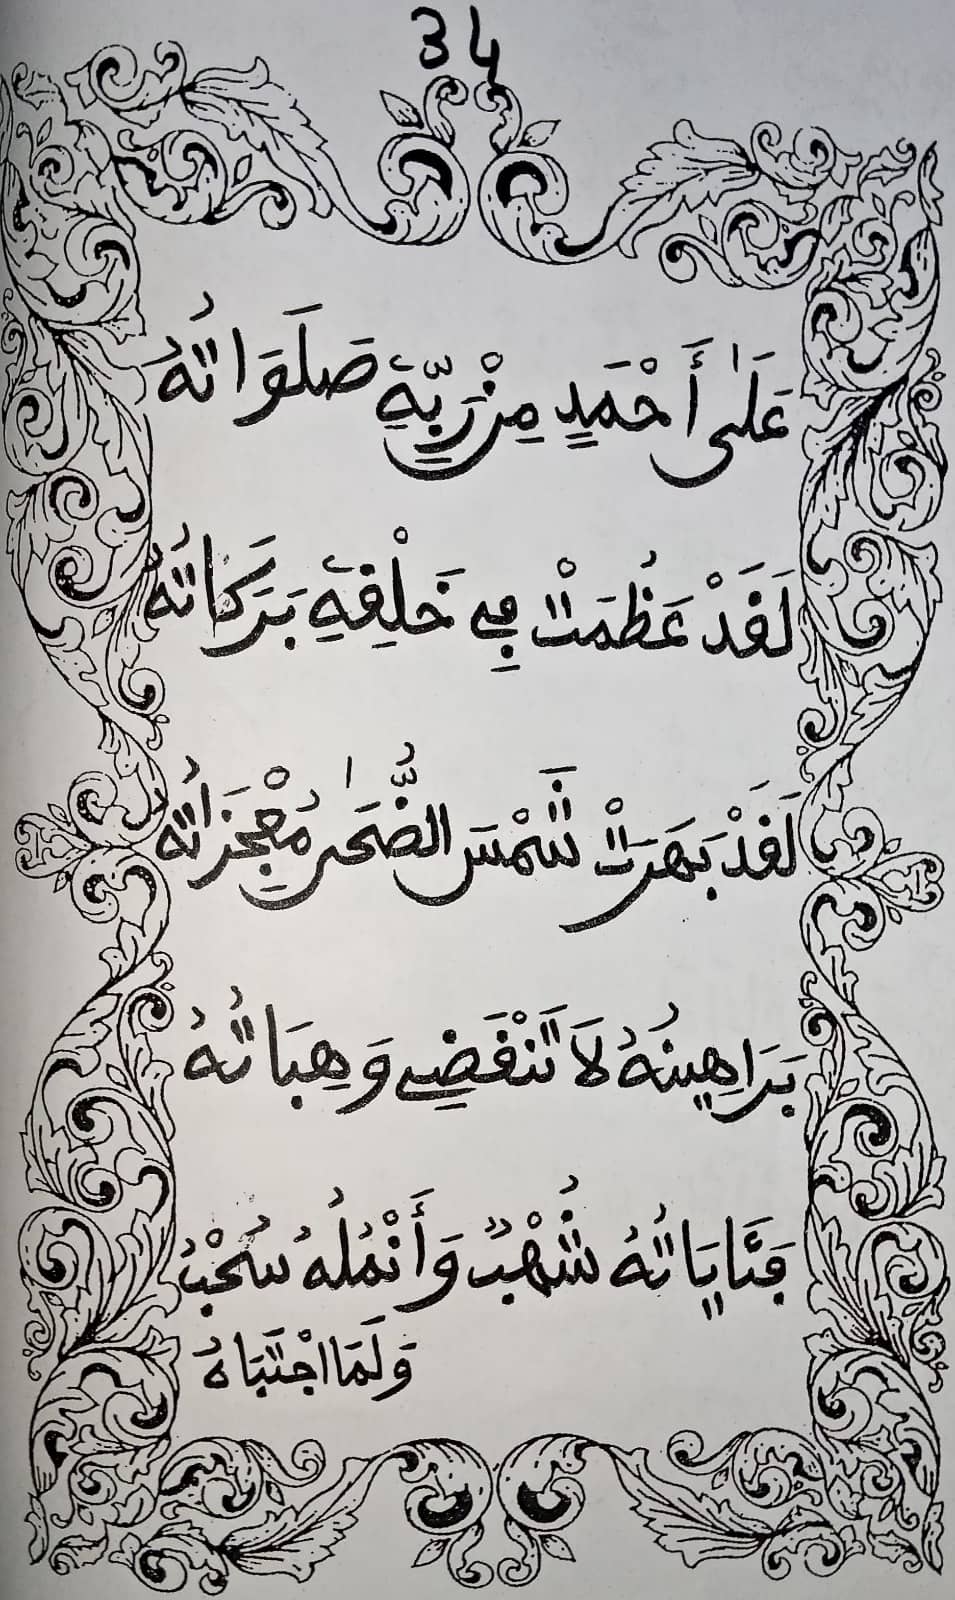 34
عَلَىٰ أَحْمَدٍ مِنْ رَبِّهِ صَلَوَاتُهُ
لَقَدْ عَظُمَتْ فِي خَلْقِهِ بَرَكَاتُهُ
لَقَدْ بَهَرَتْ شَمْسَ الضُّحَىٰ مُعْجِزَاتُهُ
بَرَاهِينُهُ لَا تَنْقَضِي وَهِبَاتُهُ
فَـَٔايَاتُهُ شُهْبٌ وَأَنْمُلُهُ سُحْبُ
وَلَمَا اجْتَبَاهُ